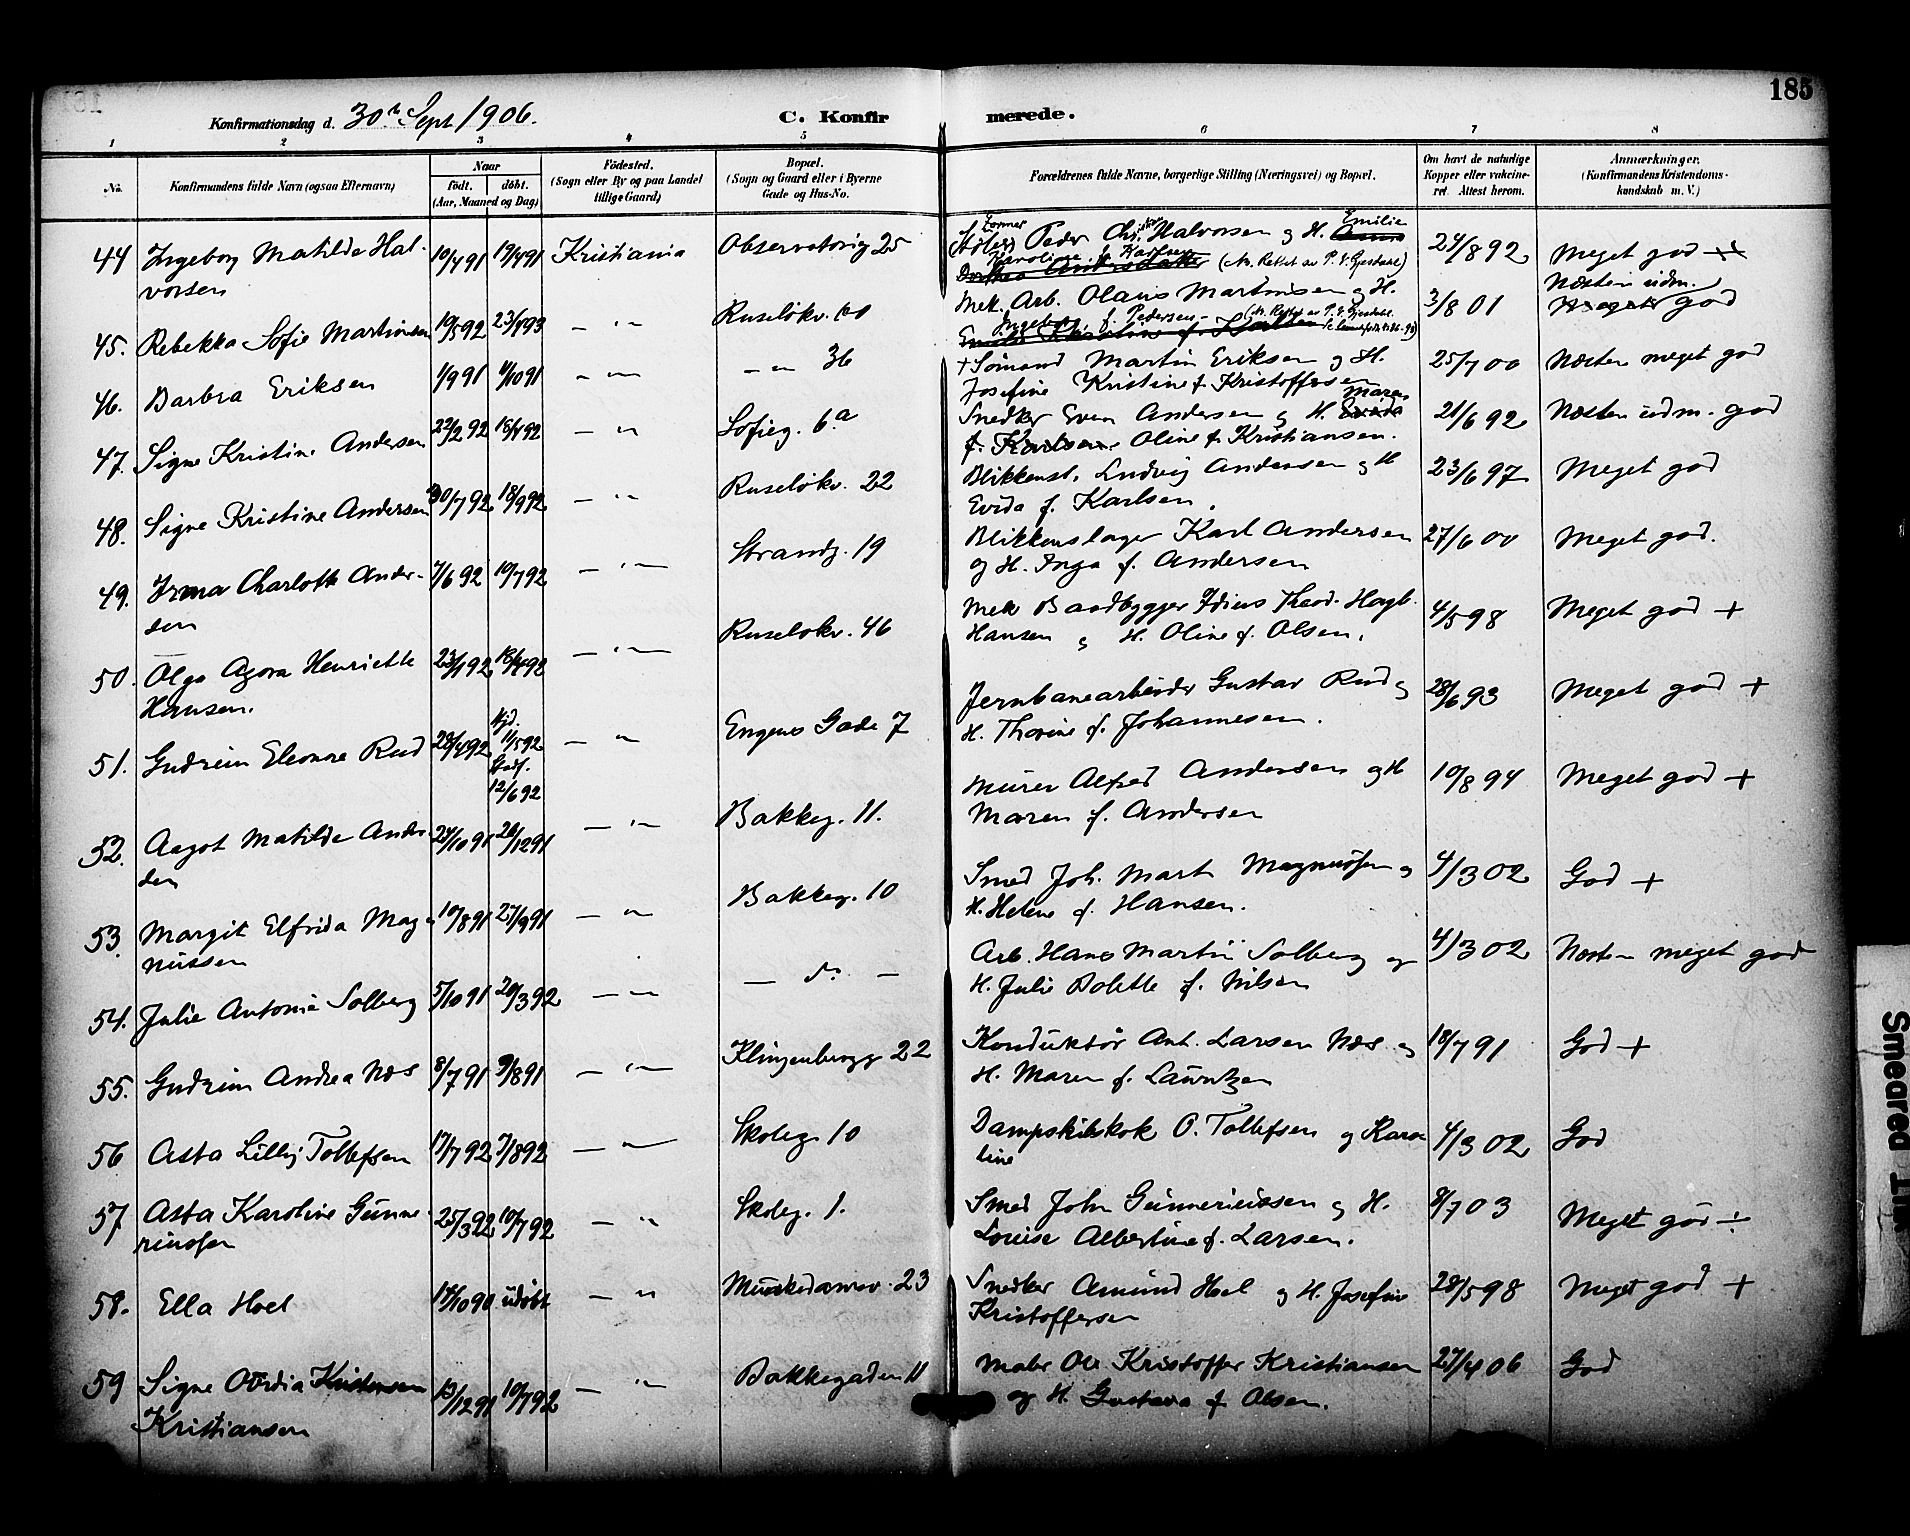 185
Konfirmationsdag d. 30te Sept 1906.
C. Konfir merede.
1 2 3 4 5 6 7 8
No. Konfirmandens fulde Navn (ogsaa Efternavn)
Naar födt. döbt. (Aar, Maaned og Dag)
Födested. (Sogn eller By og paa Landet tillige Gaard)
Bopæl. (Sogn og Gaard eller i Byerne Gade og Hus-No.
Forældrenes fulde Navne, borgerlige Stilling (Næringsvei) og Bopæl.
Om havt de naturlige Kopper eller vaccineret. Attest herom.
Anmærkninger. (Konfirmandens Kristendomskundskab m. V.)
44 Ingeborg Matilde Hal- 10/4 91 19/4 91 Kristiania Observatorieg 25 Peder Chr. Halvorsen og H. Emilie 24/8 92 Meget god
vorsen Karoline f. Karlsen (No. Rettet av P. V. Gjesdahl)
45. Rebekka Sofie Martinsen 19/5 92 23/4 93 — " — Ruseløkv. 60 Mek. Arb. Olaus Martinsen og H. 3/8 01 Næsten udm. god
Ingeborg f. Pedersen
46. Barbra Eriksen 1/9 91 4/10 91 — " — — " — 36 + Sömand Martin Eriksen og H. 25/7 00 Næsten meget god
Josefine Kristine f. Kristoffersen
47. Signe Kristine Andersen 22/2 92 18/4 92 — " Sofieg. 6a Snedker Even Andersen og H. Maren 21/6 92 Næsten udm. god
f. Karlsen. Oline f. Kristiansen.
48. Signe Kristine Andersen 30/7 92 18/9 92 — " — Ruseløkv. 22 Blikkensl. Ludvig Andersen og H 23/6 97 Meget god
Evida f. Karlsen.
49. Irma Charlotte Ander- 7/6 92 10/7 92 — " — Strandg. 19 Blikkenslager Karl Andersen 27/6 00 Meget god.
sen og H. Inga f. Andersen
50. Olga Agora Henriette 23/1 92 18/4 92 — " — Ruseløkv. 46 Mek Baadbygger Theod. Hagb. 4/5 98 Meget god +
Hansen. Hansen og H. Oline f. Olsen.
51. Gudrun Eleonore Rud 28/4 92 Hjd. 11/5 92 Stadf. 12/6 92 — " Engens Gade 7 Jernbanearbeider Gustav Rud og 28/6 93 Meget god +
H. Thorine f. Johannesen.
52. Aagot Matilde Ander- 24/10 91 26/12 91 — " — Bakkeg. 11. Murer Alfred Andersen og H 10/8 94 Meget god +
sen Maren f. Andersen
53. Margit Elfrida Mag- 10/8 91 27/9 91 — " — Bakkeg. 10 Smed Joh. Mart. Magnussen og 4/3 02 God +
nussen H. Helene f. Hansen.
54. Julie Antonie Solberg 5/10 91 20/3 92 — " — — do — Arb. Hans Martin Solberg og 4/3 02 Næsten meget god
H. Julie Bolette f. Nilsen
55. Gudrun Andrea Næs 8/7 91 9/8 91 — " — Klingenbergg 22 Konduktör Ant. Larsen Næs og 18/7 91 God +
H. Maren f. Lauritzen
56 Asta Lilly Tollefsen 17/7 92 7/8 92 — " — Skoleg. 10 Dampskibskok O. Tollefsen og Karo- 4/3 02 God
line
57 Asta Karoline Gunne- 25/3 92 10/7 92 — " Skoleg. 1. Smed John Gunneriussen og H. 8/7 03 Meget god ÷
riussen Louise Albertine f. Larsen.
58. Ella Hoel 14/10 90 udöbt — " Munkedamsv. 23 Snedker Amund Hoel og H. Josefine 28/5 98 Meget god +
Kristoffersen
59 Signe Ovidia Kristensen 13/12 91 10/7 92 — " — Bakkegaden 11 Maler Ole Kristoffer Kristiansen 27/4 06 God
Kristiansen og H. Gustava f. Olsen.
Smeared Ink